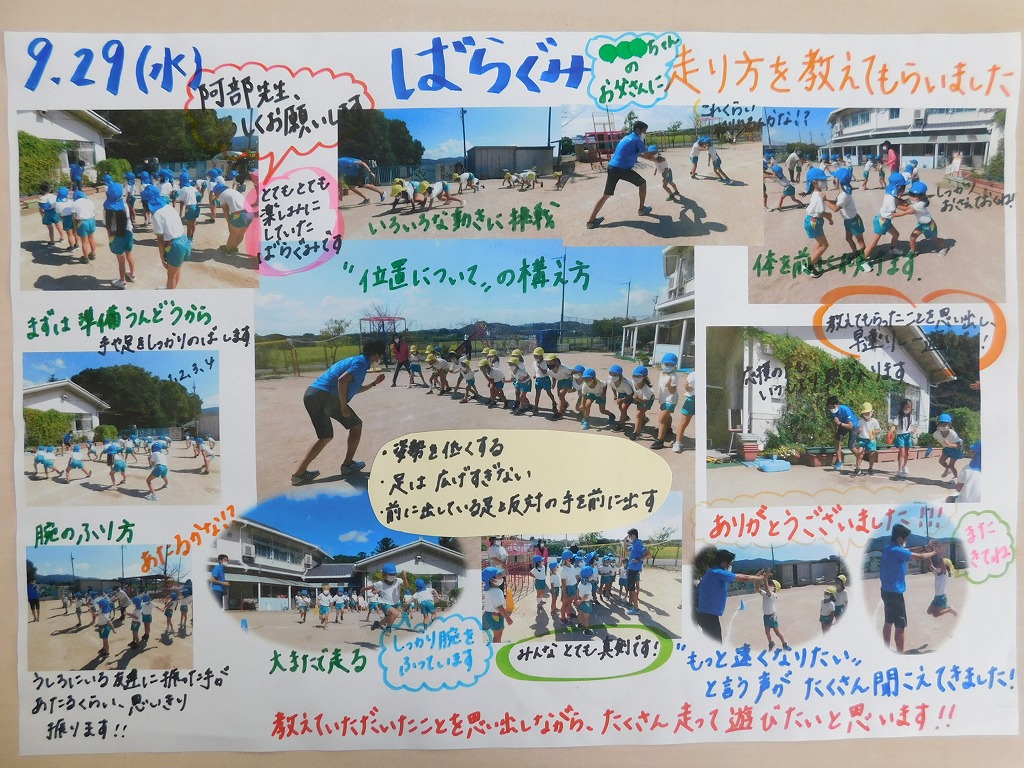 9.29(水)
ばらぐみ
ちゃん
の
お父さんに
走り方を教えてもらいました
阿部先生、
しくお願いします
とてもとても
楽しみに
していた
ばらぐみです
いろいろな動きに挑戦
これくらい
かな!?
しっかり
おさえておくね!
体を前に
ます
"位置について"の構え方
まずは 準備うんどうから
手や足をしっかりのばします
1,2,3,4
教えてもらったことを思い出し、
早速リレー遊び
!
応援の
ります
・姿勢を低くする
・足は広げすぎない
・前に出している足と反対の手を前に出す
腕のふり方
あたるかな!?
うしろにいる友達に振った手が
あたるくらい、思いきり
振ります!!
大またで走る
しっかり腕を
ふっています
みんな とても真剣です!
ありがとうございました!!!
また
きてね
"もっと速くなりたい"
と言う声が たくさん聞こえてきました!
教えていただいたことを思い出しながら、たくさん走って遊びたいと思います!!